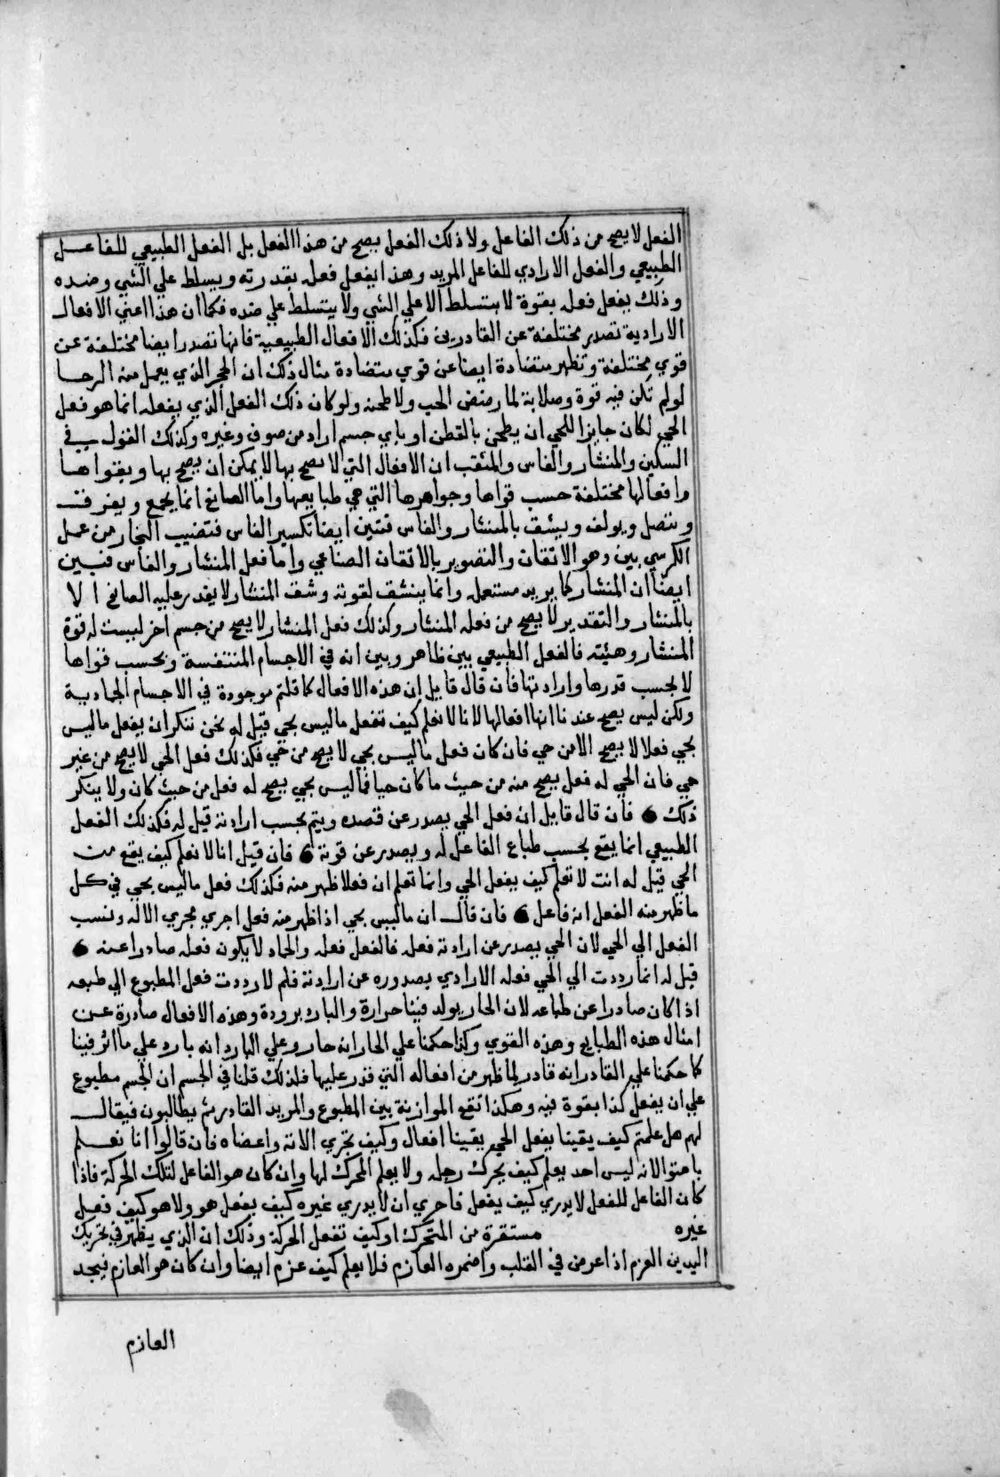 الفعل لا يصح من ذلك الفاعل ولا ذلك الفعل يصح من هذا الفعل بل الفعل الطبيعي للفاعل
الطبيعي والفعل الارادي للفاعل المريد وهذا يفعل فعله بقدرته ويسلط علي الشي وضده
وذلك يفعل فعله بقوة لا يتسلط الا علي الشي ولا يتسلط علي ضده فكما ان هذا اعني الافعال
الارادية تصدر مختلفة عن القادرين فكذلك الافعال الطبيعية فانها تصدر ايضا مختلفة عن
قوي مختلفة وتظهر متضادة ايضا عن قوي متضادة مثال ذلك ان الحجر الذي يعمل منه الرحا
لو لم تكن فيه قوة وصلابة لما رضض الحب ولا طحنه ولو كان ذلك الفعل الذي يفعله انما هو فعل
الحي لكان جايزا للحي ان يطحن بالقطن او باي جسم اراد من صوف وغيره وكذلك القول في
السكين والمنشار والفاس والمثقب ان الافعال التي لا يصح بها لا يمكن ان يصح بها وبقواها
وافعالها مختلفة حسب قواها وجواهرها التي هي طبايعها واما الصانع انما يجمع ويفرق
ويتصل ويولف ويشق بالمنشار والفاس فتبين ايضا تكسير الفاس فتضبيب النجار من عمل
الكرسي بين وهو الاتقان والتصوير بالاتقان الصناعي واما فعل المنشار والفاس فبين
ايضا ان المنشار كما يريد مستعمله وانما ينشق لقوته وشق المنشار لا يقدر عليه الصانع الا
بالمنشار والتقدير لا يصح من فعله المنشار وكذلك فعل المنشار لا يصح من جسم اخر ليست له قوة
المنشار وهيئته فالفعل الطبيعي بين ظاهر وبين انه في الاجسام المتنفسة وبحسب قواها
لا بحسب قدرها وارادتها فان قال قايل ان هذه الافعال كما قلتم موجودة في الاجسام الجمادية
ولكن ليس يصح عندنا انها افعالها لانا لا نعلم كيف تفعل ما ليس بحي قيل له نحن ننكر ان يفعل ما ليس
بحي فعلا لا يصح الا من حي فان كان فعل ما ليس بحي لا يصح من حي فكذلك فعل الحي لا يصح من غير
حي فان الحي له فعل يصح منه من حيث ما كان حيا فما ليس بحي يصح له فعل من حيث كان ولا ينكر
ذلك فان قال قايل ان فعل الحي يصدر عن قصده ويتم بحسب ارادته قيل له فكذلك الفعل
الطبيعي انما يقع بحسب طباع الفاعل له ويصدر عن قوته فان قيل انا لا نعلم كيف يقع من
الحي قيل له انت لا تعلم كيف يفعل الحي وانما تعلم ان فعلا ظهر منه فكذلك فعل ما ليس بحي في كل
ما ظهر منه الفعل انه فاعل فان قال ان ما ليس بحي اذا ظهر منه فعل اجري مجري الاله ونسب
الفعل الي الحي لان الحي يصدر عن ارادته فعله فالفعل فعله والجماد لا يكون فعله صادرا عنه
قيل له انما رددت الي الحي فعله الارادي بصدوره عن ارادته فلم لا رددت فعل المطبوع الي طبعه
اذا كان صادرا عن طباعه لان الحار يولد فينا حرارة والبارد برودة وهذه الافعال صادرة عن
امثال هذه الطبايع وهذه القوي وكذا حكمنا علي الحار انه حار وعلي البارد انه بارد علي ما اثر فينا
كما حكمنا علي القادر انه قادر لما ظهر من افعاله التي قدر عليها فلذلك قلنا في الجسم ان الجسم مطبوع
علي ان يفعل كذا بقوة فيه وهكذا تقع الموازنة بين المطبوع والمريد القادر ثم يطالبون فيقال
لهم هل علمتم كيف يقينا يفعل الحي يقينا افعال وكيف تجري الاته واعضاه فان قالوا انا نعلم
باهتوا لانه ليس احد يعلم كيف يحرك رجله ولا يعلم المحرك لها وان كان هو الفاعل لتلك الحركة فاذا
كان الفاعل للفعل لا يدري كيف يفعل فاحري ان لا يدري غيره كيف يفعل هو ولا هو كيف فعل
غيره مستقرة من المتحرك او كيف تفعل الحركة وذلك ان الذي يظهر في تحريك
اليدين العزم اذا عرض في القلب واضمره العازم فلا يعلم كيف عزم ايضا وان كان هو العازم فيجد
العازم